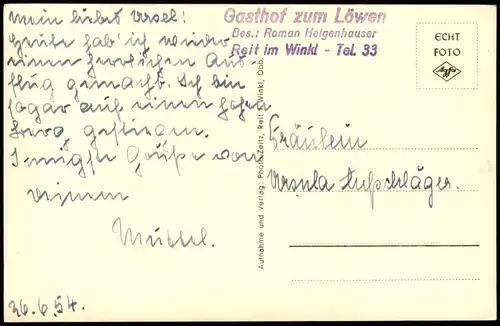 Mein liebes Ursel!
Heute hab' ich wieder
einen herrlichen Aus-
flug gemacht. Ich bin
sogar auf einen hohen
Berg gestiegen.
Innigste Grüße von
Deinem
Mussel.
26.6.54.
Gasthof zum Löwen
Bes.: Roman Helgenhauser
Reit im Winkl - Tel. 33
ECHT
FOTO
Agfa
Aufnahme und Verlag: Photo-Zeitz, Reit i. Winkl, Obb.
Fräulein
Ursula Aufschläger.